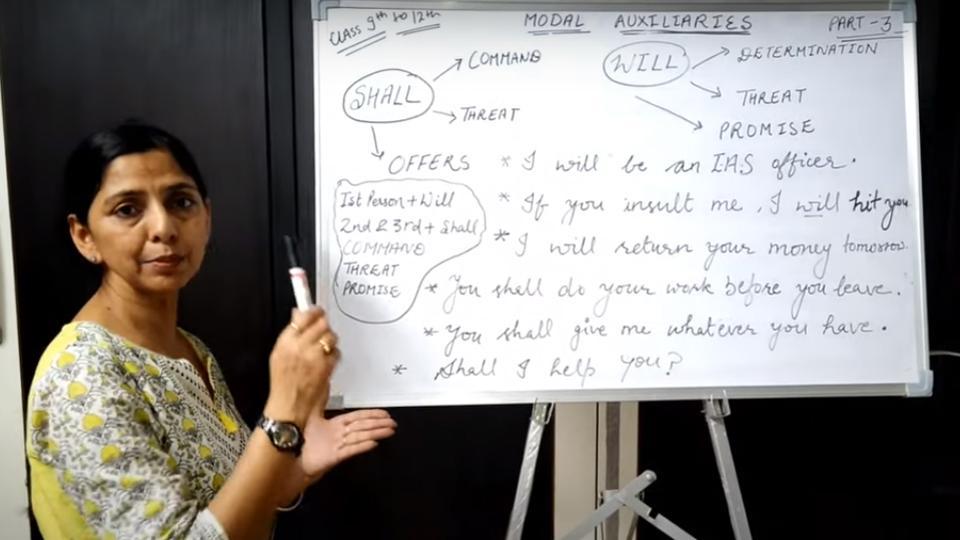 CLASS 9th to 12th MODAL AUXILIARIES PART-3
SHALL
COMMAND
THREAT
OFFERS
WILL
DETERMINATION
THREAT
PROMISE
Ist Person + Will
2nd & 3rd + Shall
COMMAND
THREAT
PROMISE
* I will be an IAS officer.
* If you insult me, I will hit you
* I will return your money tomorrow.
* You shall do your work before you leave.
* You shall give me whatever you have.
* Shall I help you?